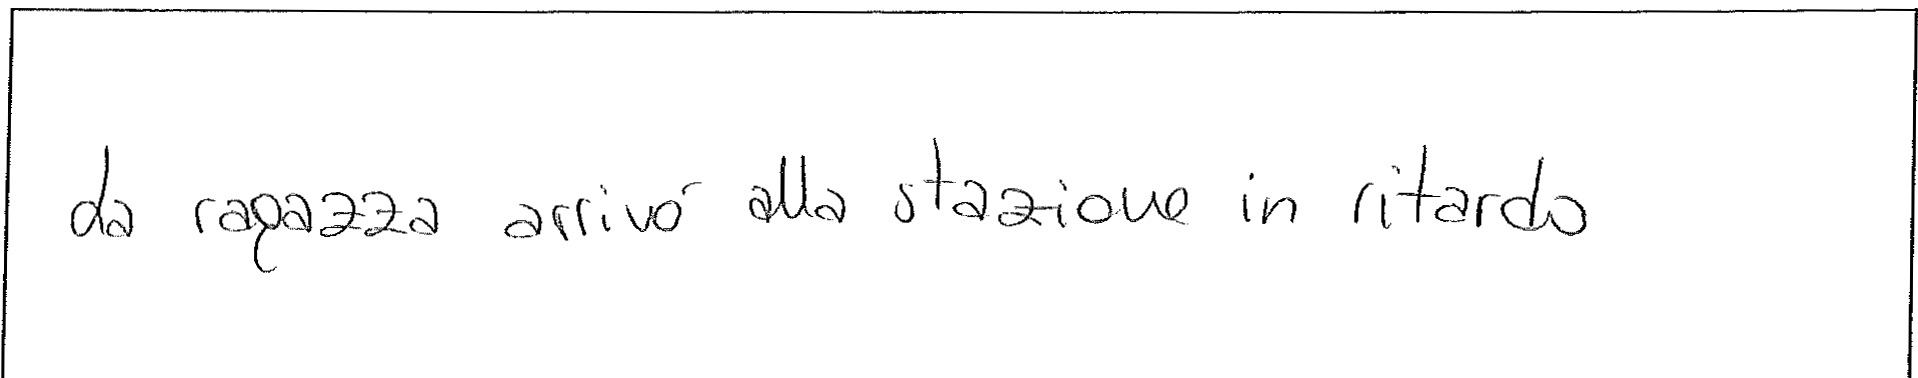 da ragazza arrivó alla stazione in ritardo